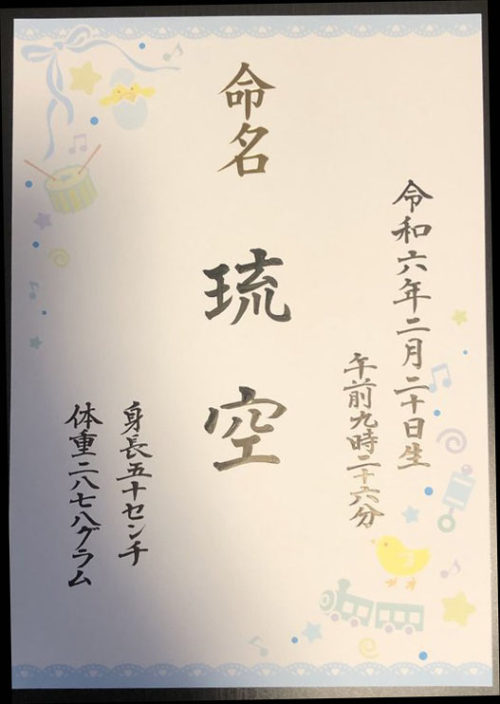 令和六年二月二十日生
午前九時二十六分
命名
琉空
身長五十センチ
体重二八七八グラム